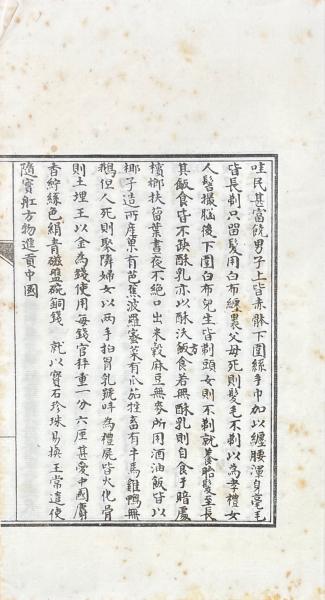 哇民甚富饒男子上皆赤膊下圍絲手巾加以纏腰渾身毫毛
皆長剃只留髮用白布纏裹父母死則髮毛不剃以為孝禮女
人髻撮腦後下圍白布兒生皆剃頭女則不剃就養胎髮至長
其飯食皆不缺酥乳亦以酥沃飯方食若無酥乳則自食于暗處
檳榔扶留葉晝夜不絕口出米穀麻豆無麥所用酒油飯皆以
椰子造所產菓有芭蕉波羅蜜菜有瓜茄牲畜有牛馬雞鴨無
鵝但人死則聚隣婦女以兩手拍胷乳號呼為禮屍皆火化骨
則土埋王以金為錢使用每錢官秤重一分六厘甚愛中國麝
香紵絲色絹青磁盤碗銅錢 就以寶石珍珠易換王常遣使
隨寶舡方物進貢中國